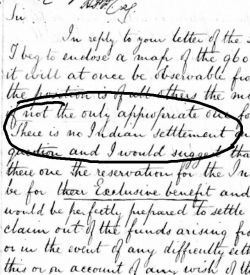 Sir
In reply to your letter of the
I beg to enclose a map of the 960
it will at once be observable
the position is of all others the
not the only appropriate one for
There is no Indian settlement
question and I would suggest
there one the reservation for the In
be for their Exclusive benefit and
would be perfectly prepared to settle
claim out of the funds arising
or in the event of any difficulty
this or on account of any wish